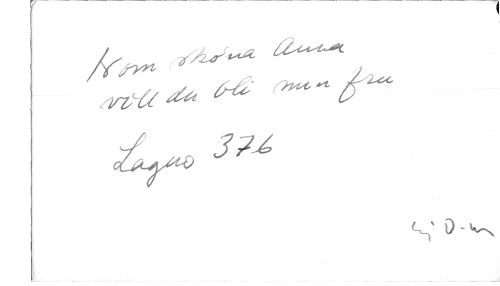 Kom sköna Anna
vill du bli min fru
Lagus 376
ej D-m